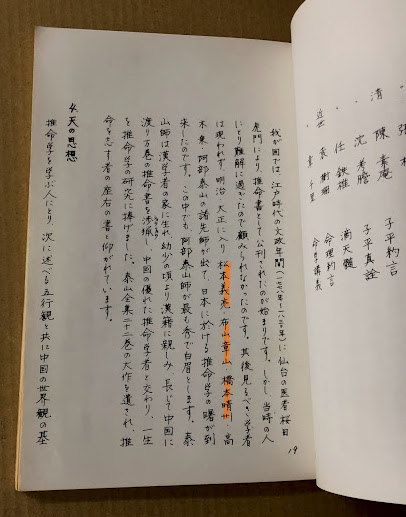 張 楠
清 陳 素庵 子平約言
沈 孝瞻 子平真詮
任 鉄樵 滴天髓
近世 袁 樹珊
韋 千里 命学講義
我が国では、江戸時代の文政年間に仙台の医者桜田
虎門により、推命書として公刊されたのが始まりです。しかし、当時の人
にとり難解に過ぎたので顧みられなかったのです。其後見るべき学者
は現われず、明治 大正に入り 松本義亮・布山章山・橋本晴サ・高
木乗・阿部泰山の諸先師が出て、日本に於ける推命学の曙が到
来したのです。この中でも 阿部泰山師が最も秀で白眉とします。泰
山師は漢学者の家に生れ 幼少の頃より漢籍に親しみ、長じて中国に
渡り万巻の推命書を渉猟し、中国の優れた推命学者と交わり、一生
を推命学の研究に捧げました。泰山全集二十二巻の大作を遺され、推
命を志す者の座右の書と仰がれています。
4. 天の思想
推命学を学ぶ人にとり、次に述べる五行観と共に中国の世界観の基
19